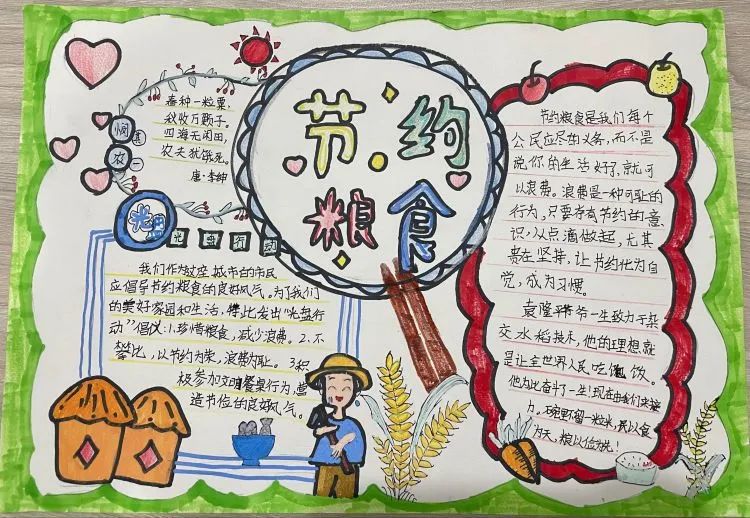 节约
粮食
悯
农
其
一
春种一粒粟,
秋收万颗子。
四海无闲田,
农夫犹饿死。
唐·李绅
光盘
光盘行动
我们作为这座城市的市民
应倡导节约粮食的良好风气。为了我们
的美好家园和生活,特此发出“光盘行
动”倡仪:1.珍惜粮食,减少浪费。2.不
攀比,以节约为荣,浪费为耻。3积
极参加文明餐桌行为,营
造书位的良好风气。
节约粮食是我们每个
公民应尽的义务,而不是
说你的生活好了,就可
以浪费。浪费是一种可耻的
行为,只要存有节约的意
识,从点滴做起,尤其
贵在坚持,让节约化为自
觉,成为习惯。
袁隆平爷爷一生致力于杂
交水稻技术,他的理想就
是让全世界人民吃饱饭。
他为此奋斗了一生!现在由我们来接
力。碗里不留一粒米,民以食
为天,粮以位为先!